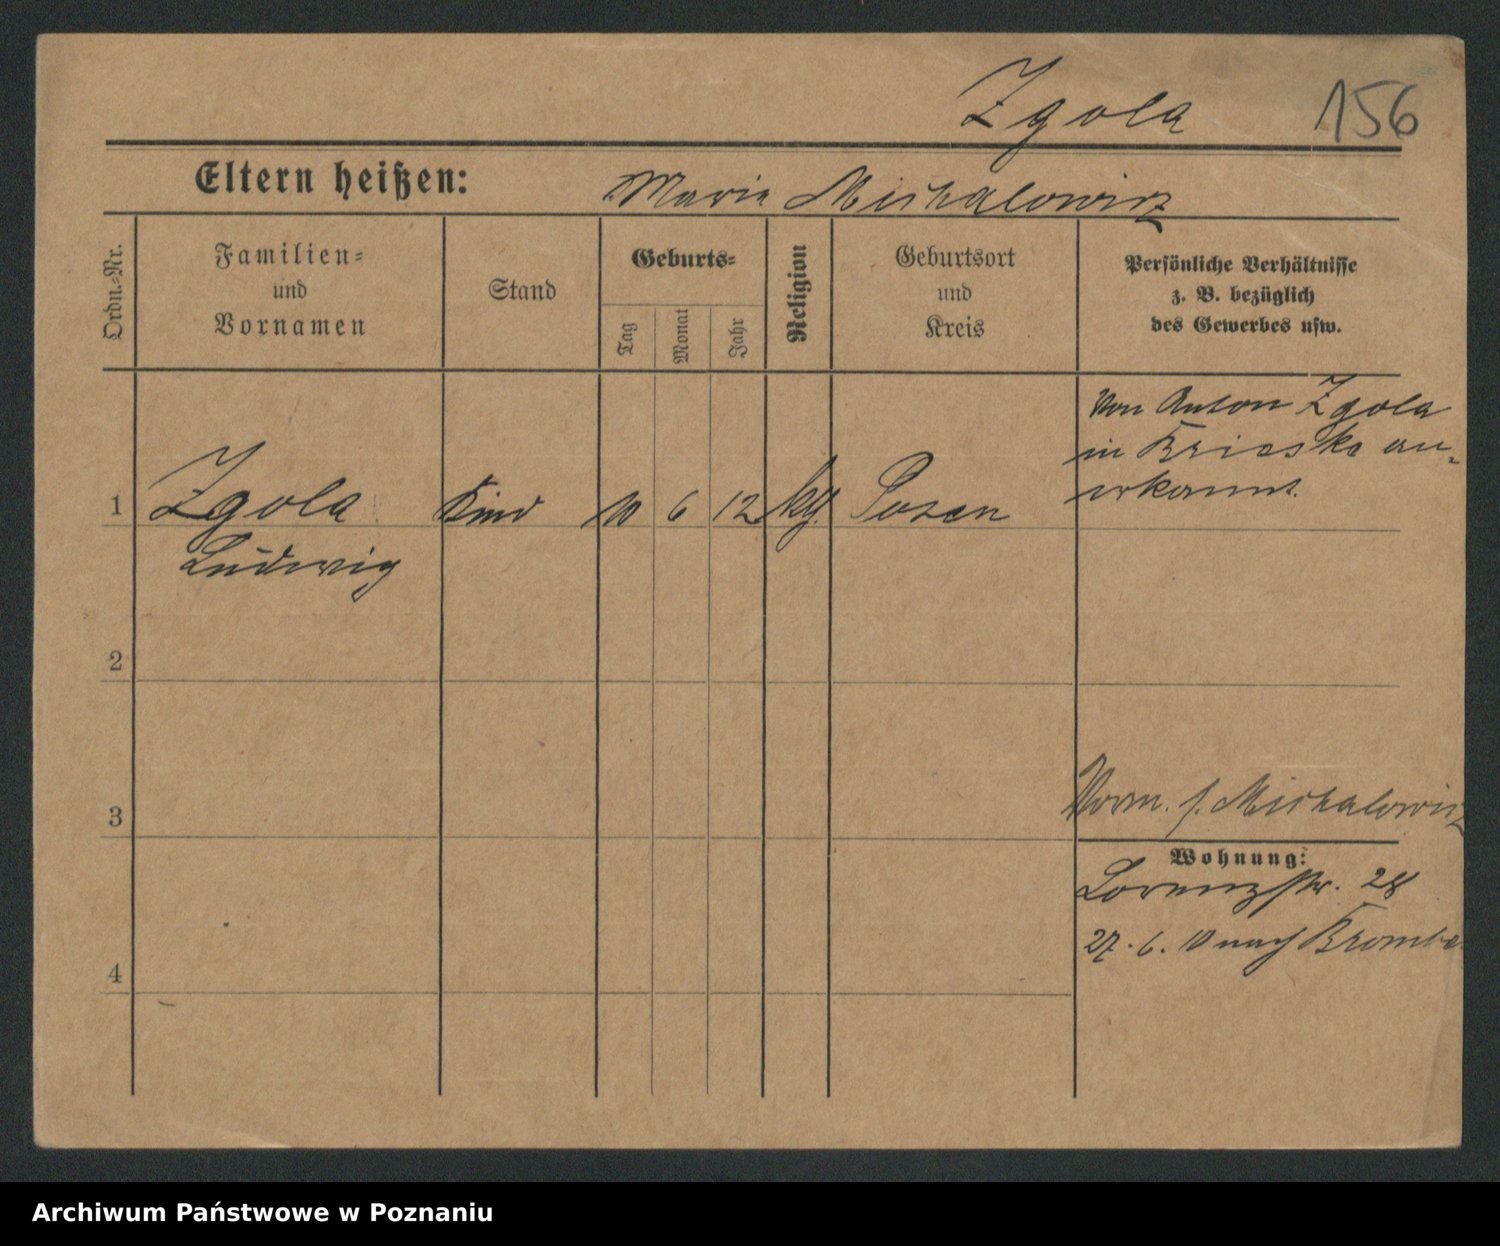 Zgola 156
Eltern heißen: Marie Michalowicz
Ordn.-Nr.
Familien-
und
Vornamen
Stand
Geburts-
Tag
Monat
Jahr
Religion
Geburtsort
und
Kreis
Persönliche Verhältnisse
z. B. bezüglich
des Gewerbes usw.
Von Anton Zgola
in an-
erkannt.
1 Zgola Kind 10 6 12 kth. Posen
Ludwig
2
3
Vorm. f. Michalowicz
Wohnung:
Lorenzstr. 28
27. 6. nach Bromb
4
Archiwum Państwowe w Poznaniu